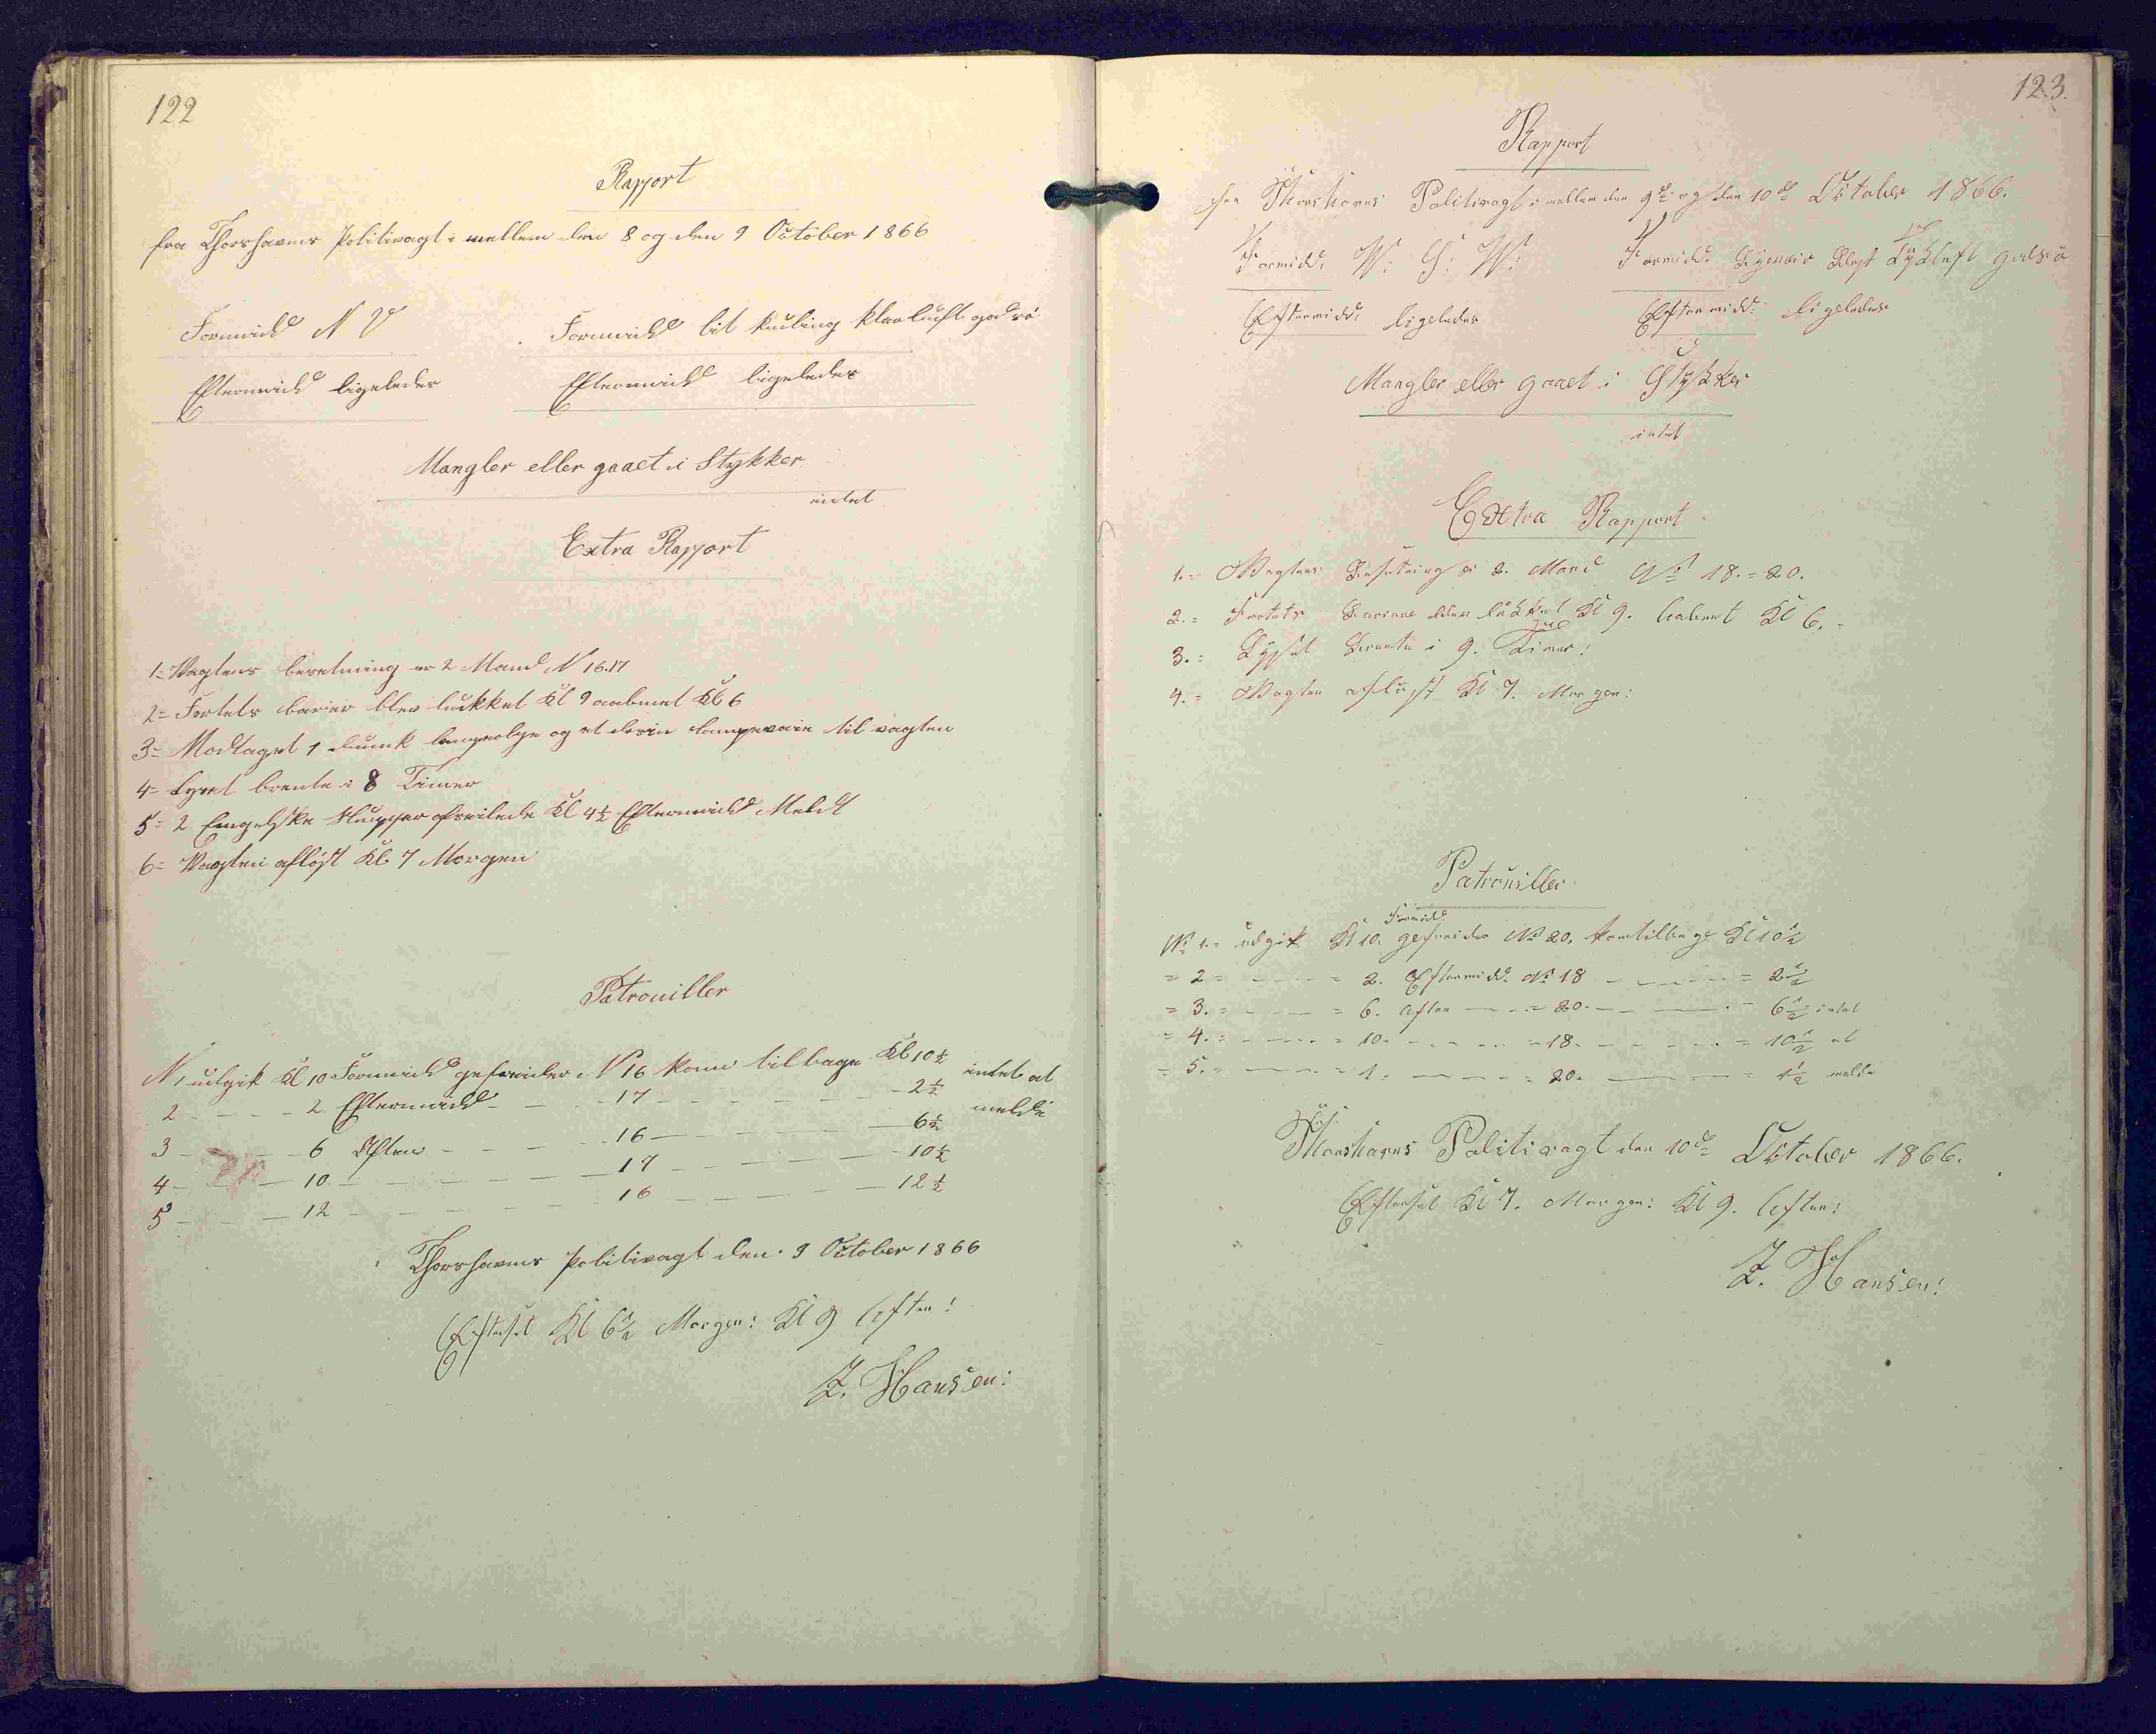 122
Rapport
fra Thorshavns Politivagt i mellem den 8 og den 9 October 1866
Formidd N V
Formidd lit kuling klarluft godsö
Eftermidd ligeledes
Eftermidd ligeledes
Mangler eller gaaet i Stykker
intet
Extra Rapport
1= Vagtens besetning er 2 Mand N 16.17
2= Fortets barier blev lukket Kl 9 aabnet Kl 6
3= Modtaget 1 dunk og et til vagten
4= Lyset brente i 8 Timer
5= 2 Engelske Slupper afseilede Kl 4½ Eftermidd Meldt
6= Vagten aflöst Kl 7 Morgen
Patrouiller
N 1 udgik Kl 10 Formidd gefreider N 16 kom tilbage Kl 10½ intet at
2 - - - - 2 Eftermidd - - - 17 - - - - - - 2½ melde
3 - - - 6 Aften - - - - 16 - - - - - 6½
4 - - - 10 - - - - - - 17 - - - - - 10½
5 - - - 12 - - - - - - 16 - - - - - 12½
Thorshavns Politivagt den 9 October 1866
Efterset Kl 6½ Morgen: Kl 9 Aften:
Z. Hansen:
123.
Rapport
fra Thorshavns Politivagt i mellem den 9de og den 10de October 1866.
Formidd: W: S: W:
Formidd: Tÿkluft godsö
Eftermidd: ligeledes
Eftermidd: ligeledes
Mangler eller gaaet i Stÿkker
intet
Extra Rapport
1.= Vagtens Besetning er 2. Mand No 18.=20.
2.= Fortets Bariere blev lukket Kl 9. Aabent Kl 6.=
3.= Lÿset Brente i 9. Timer:
4.= Vagten aflöst Kl 7. Morgen:
Patrouiller
No 1.= udgik Kl 10. Formidd: gefreider No 20. kom tilbage Kl 10½
= 2 = - - - - = 2. Eftermidd: No 18 - - - - - = 2½
= 3. = - - - = 6. Aften - - - = 20. - - - - - 6½ intet
= 4. = - - - - = 10. - - - - - = 18. - - - - - = 10½ at
= 5. = - - - - = 1. - - - - = 20. - - - - = 1½ melde
Thorshavns Politivagt den 10de October 1866.
Efterset Kl 7. Morgen: Kl 9. Aften:
Z. Hansen: